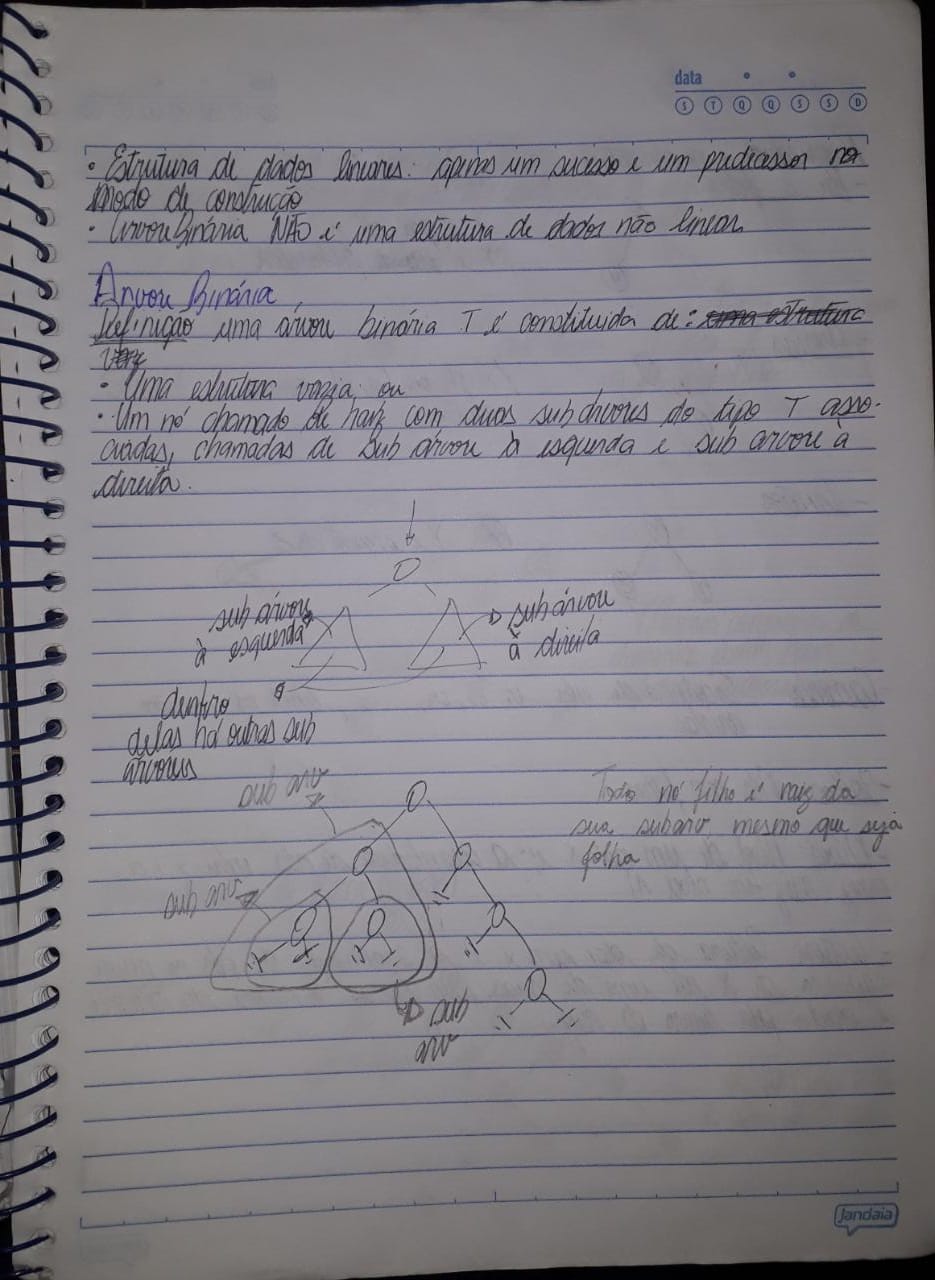 data
S T Q Q S S D
• Estrutura de dados lineares: apenas um sucesso e um predecessor no
modo de construção
• Árvore Binária NÃO é uma estrutura de dados não linear.
Árvore Binária
Definição uma árvore binária T é constituida de: uma estrutura
• Uma estrutura vazia; ou
• Um nó chamado de raiz com duas sub árvores do tipo T asso-
ciadas, chamadas de sub árvore à esquerda e sub árvore à
direita.
sub árvore
à esquerda
sub árvore
à direita
dentro
delas há outras sub
árvores
sub arv
Todo nó filho é raiz da
sua subarv, mesmo que seja
folha
sub arv
sub
arv
Jandaia